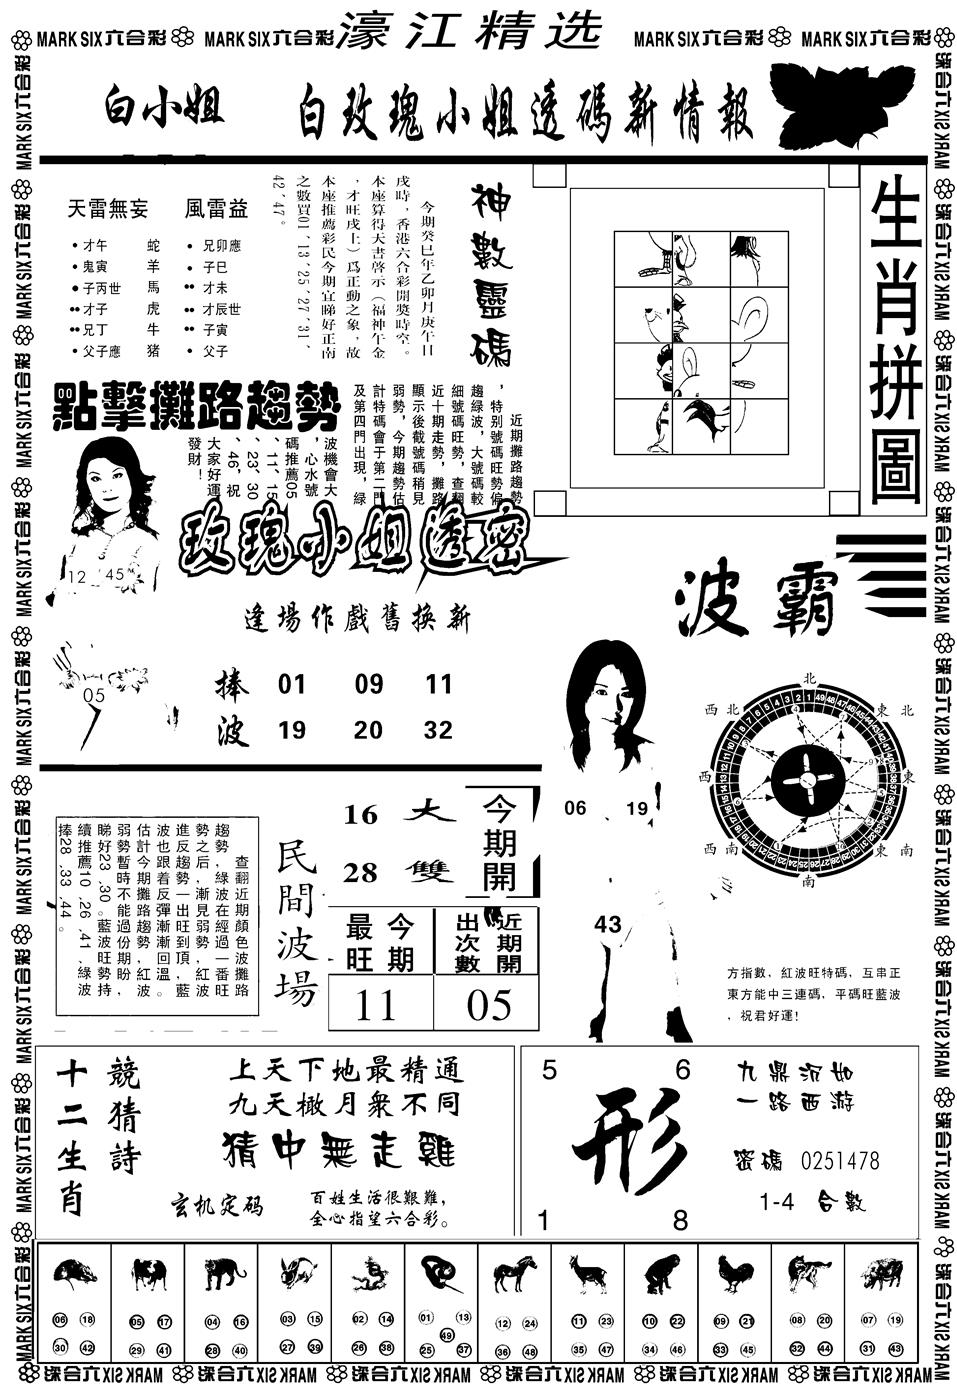 MARK SIX六合彩 MARK SIX六合彩 濠江精选 MARK SIX六合彩 MARK SIX六合彩
白小姐 白玫瑰小姐透碼新情報
天雷無妄 風雷益
•才午 蛇 •兄卯應
•鬼寅 羊 •子巳
•子丙世 馬 ••才未
••才子 虎 ••才辰世
••兄丁 牛 ••子寅
•父子應 猪 •父子
神數靈碼
今期癸巳年乙卯月庚午日
戌時，香港六合彩開獎時空。
本座算得天書啓示（福神午金
，才旺戌上）爲正動之象，故
本座推薦彩民今期宜睇好正南
之數買01、13、25、27、31、
42、47。
生肖拼圖
點擊攤路趨勢
近期攤路趨勢
，特別號碼旺勢偏
趨綠波，大號碼較
細號碼旺勢，查翻
近十期走勢，攤路
顯示後截號碼稍見
弱勢，今期趨勢估
計特碼會于第二門
及第四門出現，綠
波機會大
，心水號
碼推薦05
、11、15
、23、30
、46，祝
大家好運
發財！
12 45
05
玫瑰小姐透密
逢場作戲舊換新
捧 01 09 11
波 19 20 32
波霸
06 19
43
北
東北
東
東南
南
西南
西
西北
方指數，紅波旺特碼，互串正
東方能中三連碼，平碼旺藍波
，祝君好運！
查翻近期顏色波攤路
趨勢，綠波在經過一番旺
勢之后，漸見弱勢，紅波
進反趨勢一出旺到頂，藍
波也跟着反彈漸漸回溫。
估計今期攤路趨勢，紅波
弱勢暫時不能過份期盼，
睇好23、30。藍波旺勢持
續推薦10、26、41，綠波
捧28、33、44。
民間波場
16 大
28 雙
今期開
今期最旺
近期開出次數
11 05
競猜詩
十二生肖
上天下地最精通
九天橄月衆不同
猜中無走雞
玄机定码
百姓生活很艱難，
全心指望六合彩。
5 6
形
1 8
九鼎沉如
一路西游
密碼 0251478
1-4 合數
06 18 05 17 04 16 03 15 02 14 01 13 12 24 11 23 10 22 09 21 08 20 07 19
49
30 42 29 41 28 40 27 39 26 38 25 37 36 48 35 47 34 46 33 45 32 44 31 43
MARK SIX六合彩 MARK SIX六合彩 MARK SIX六合彩 MARK SIX六合彩 MARK SIX六合彩